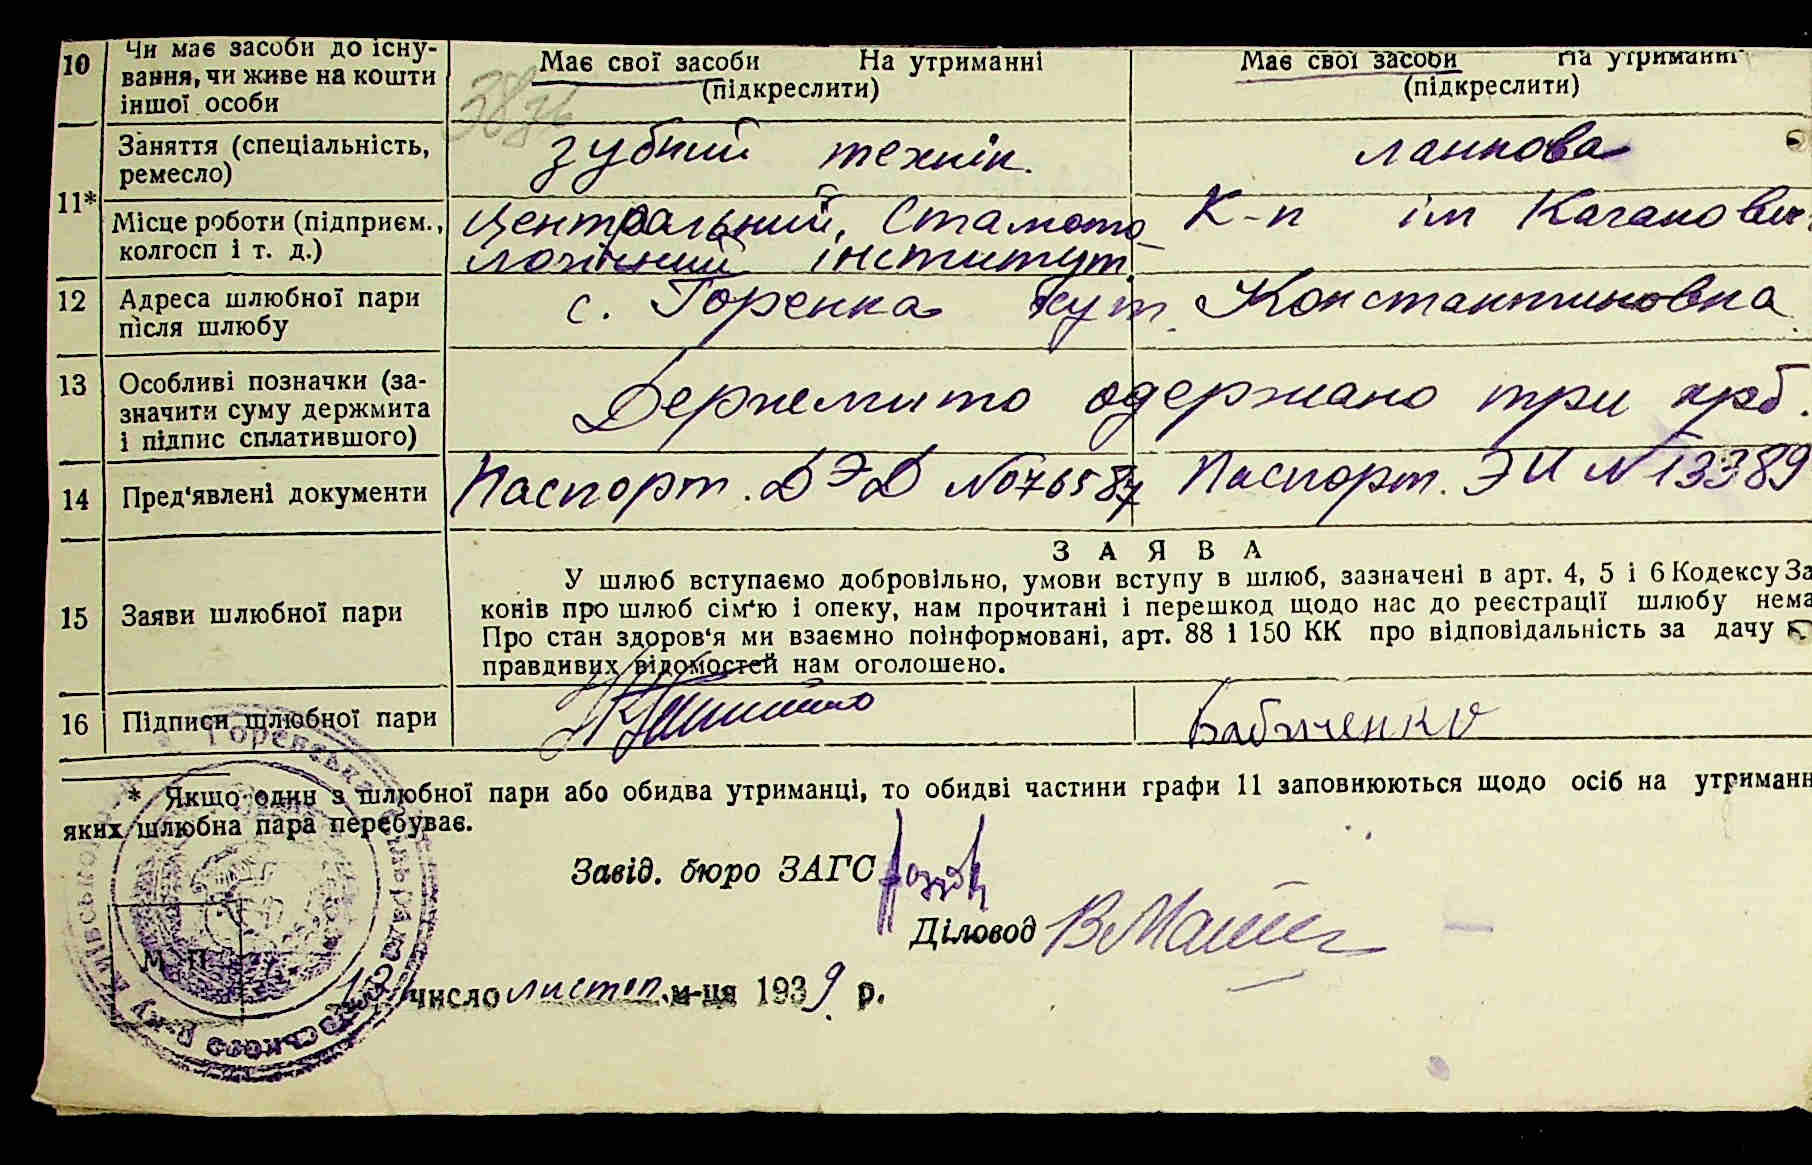 10 Чи має засоби до існу- Має свої засоби На утриманні Має свої засоби На утриманні
вання, чи живе на кошти (підкреслити) (підкреслити)
іншої особи
Заняття (спеціальність, зубний технік. ланкова
ремесло)
11*
Місце роботи (підприєм., Центральний, Стамато- К-п ім Каганович
колгосп і т. д.) логічний інститут.
12 Адреса шлюбної пари с. Горенка кут. Константиновка
після шлюбу
13 Особливі позначки (за- Держмито одержано три крб.
значити суму держмита
і підпис сплатившого)
14 Пред‘явлені документи Паспорт. ДЭД №076587 Паспорт. ЭИ №13389
З А Я В А
У шлюб вступаємо добровільно, умови вступу в шлюб, зазначені в арт. 4, 5 і 6 Кодексу За
15 Заяви шлюбної пари конів про шлюб сім‘ю і опеку, нам прочитані і перешкод щодо нас до реєстрації шлюбу нема
Про стан здоров‘я ми взаємно поінформовані, арт. 88 і 150 КК про відповідальність за дачу
правдивих відомостей нам оголошено.
16 Підписи шлюбної пари Бабиченко
* Якщо один з шлюбної пари або обидва утриманці, то обидві частини графи 11 заповнюються щодо осіб на утриманн
яких шлюбна пара перебуває.
Завід. бюро ЗАГС
Діловод
М. П.
число листоп. м-ця 1939 р.